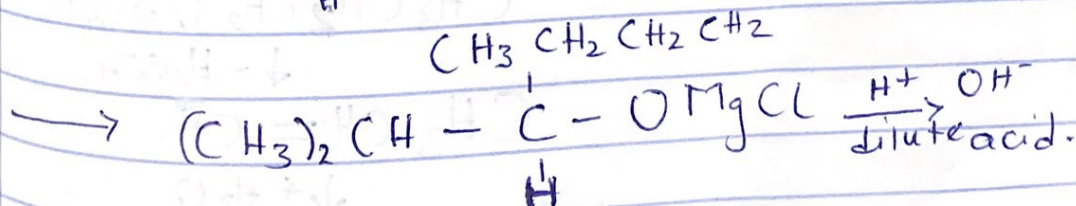 CH3 CH2 CH2 CH2
→ (CH3)2 CH - C - OMgCl H+ → OH-
dilute acid.
H